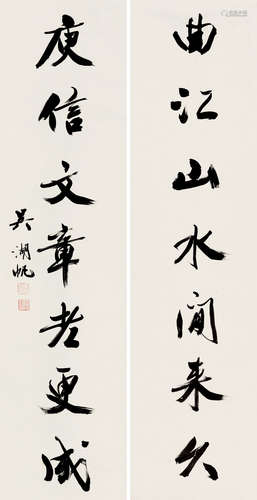 曲江山水闻来久
庾信文章老更成
吴湖帆